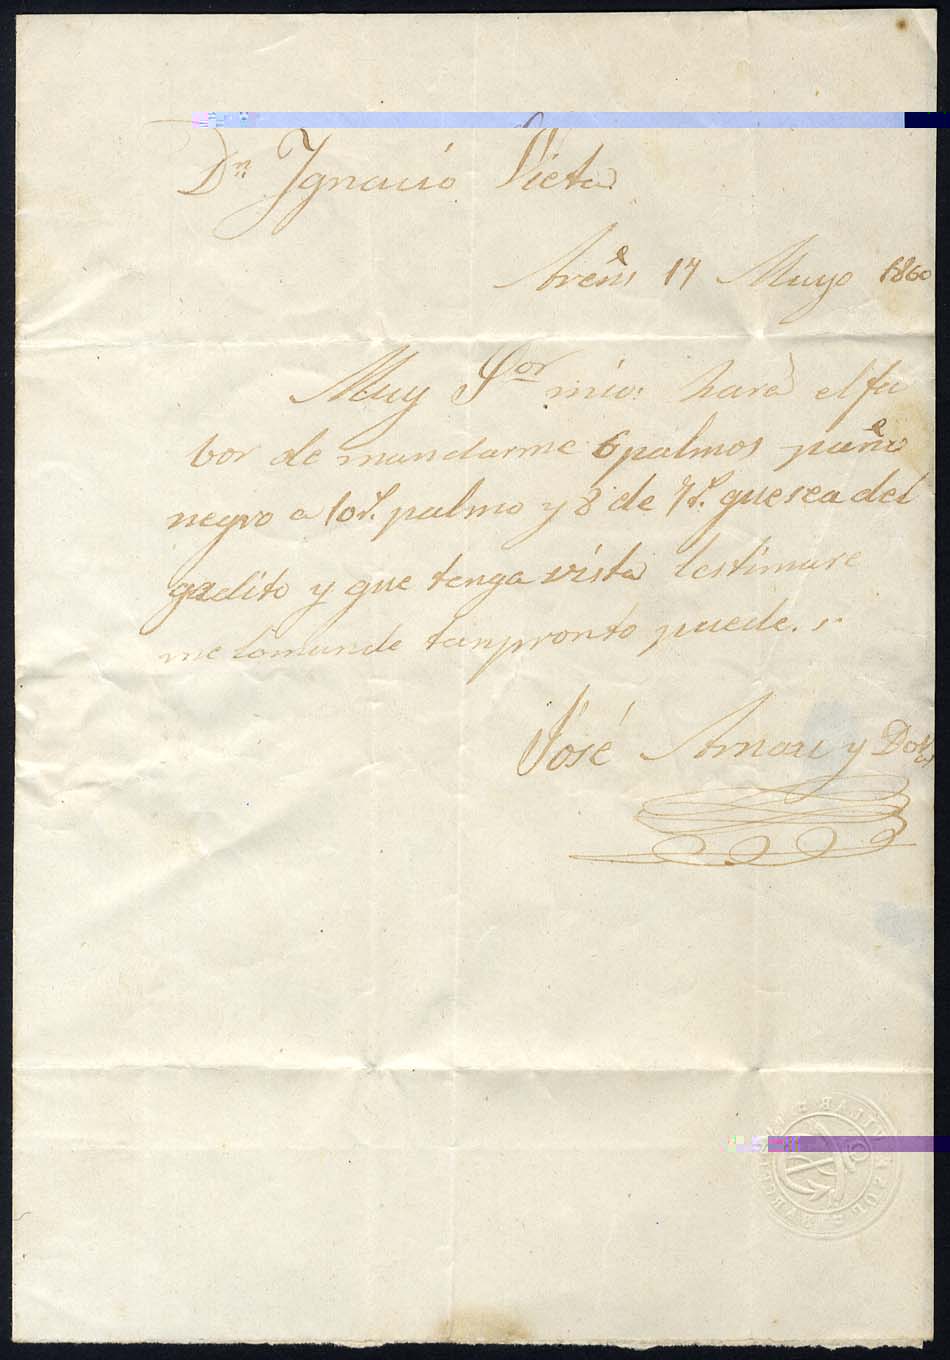 Dn Ignacio Vieta
Areñs 17 Mayo 1860
Muy Sor mio: hará el fa
bor de mandarme 6 palmos paño
negro a 10 rs. palmo y 8 de 7 rs. que sea del
gadito y que tenga vista lestimare
me lo mande tanpronto puede.
José Arnau y